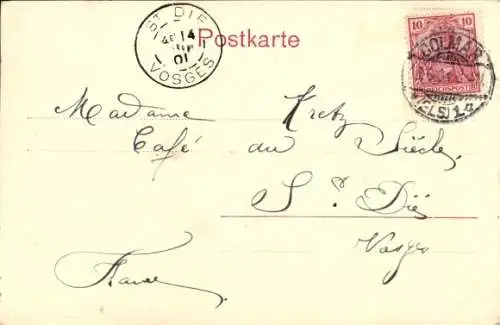 Postkarte
ST DIE
14
01
VOSGES
10
10
COLMAR
(ELS) 1
Madame Kretz
Café du Siècle,
St Dié
Vosges